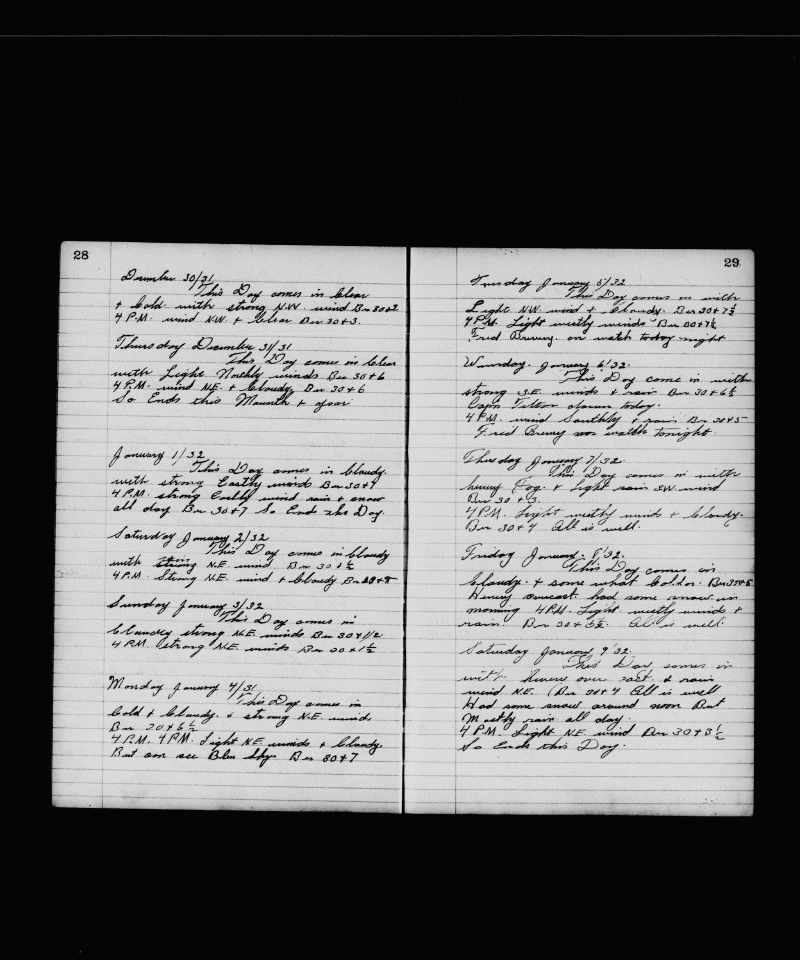 28
December 30/31
This Day comes in Clear
+ Cold. with strong N.W. wind Bar 30+2
4 P.M. wind N.W. + Clear Bar. 30+3.
Thursday December 31/31
This Day comes in Clear
with Light Northly winds Bar 30+6
4 P.M. wind N.E. + Cloudy. Bar 30+6
So Ends this Mounth + year
January 1/32
This Day comes in Cloudy.
with strong Eastly winds Bar 30+9
4 P.M. strong Eastly wind rain + snow
all day Bar 30+7 So Ends this Day.
Saturday January 2/32
This Day comes in Cloudy
with strong N.E. wind Bar 30 1/2
4 P.M. Strong N.E. wind + Cloudy Bar 29+8
Sunday January 3/32
This Day comes in
Cloudey strong N.E. winds Bar 30+1/2
4 P.M. strong N.E. winds Bar 30+1 1/2
Monday January 4/31
This Day comes in
Cold + Cloudy. + strong N.E. winds
Bar 30+6 1/2
4 P.M. 4 P.M. Light N.E. winds + Cloudy.
But can see Blue sky. Bar 30+7
29
Tuesday January 5/32
This Day comes in with
Light N.W. wind + Cloudy. Bar 30+7 1/2
4 P.M. Light westly winds Bar 30+7 1/2
Fred Brewey. on watch today night
Wensday. January 6/32.
This Day come in with
strong S.E. winds + rain Bar 30+6 1/2
Capn Tilton down today.
4 P.M. wind Southly + rain Bar 30+5
Fred Brewey on watch tonight.
Thusday January 7/32.
This Day comes in with
heavy Fog. + Light rain S.W. wind
Bar 30 + 3.
4 P.M. Light westly winds + Cloudy.
Bar 30+4 All is well.
Friday January. 8/32.
This Day comes in
Cloudy. + some what Colder. Bar 30+6
Heavy overcast. had some snow in
morning 4 P.M. Light westly winds +
rain. Bar 30+6 1/2. All is well.
Saturday January 9/32.
This Day comes in
with heavy over cast. + rain
wind N.E. Bar 30+4 All is well
Had some snow around noon But
Mostly rain all day.
4 P.M. Light N.E. wind Bar 30+3 1/2
So Ends this Day.